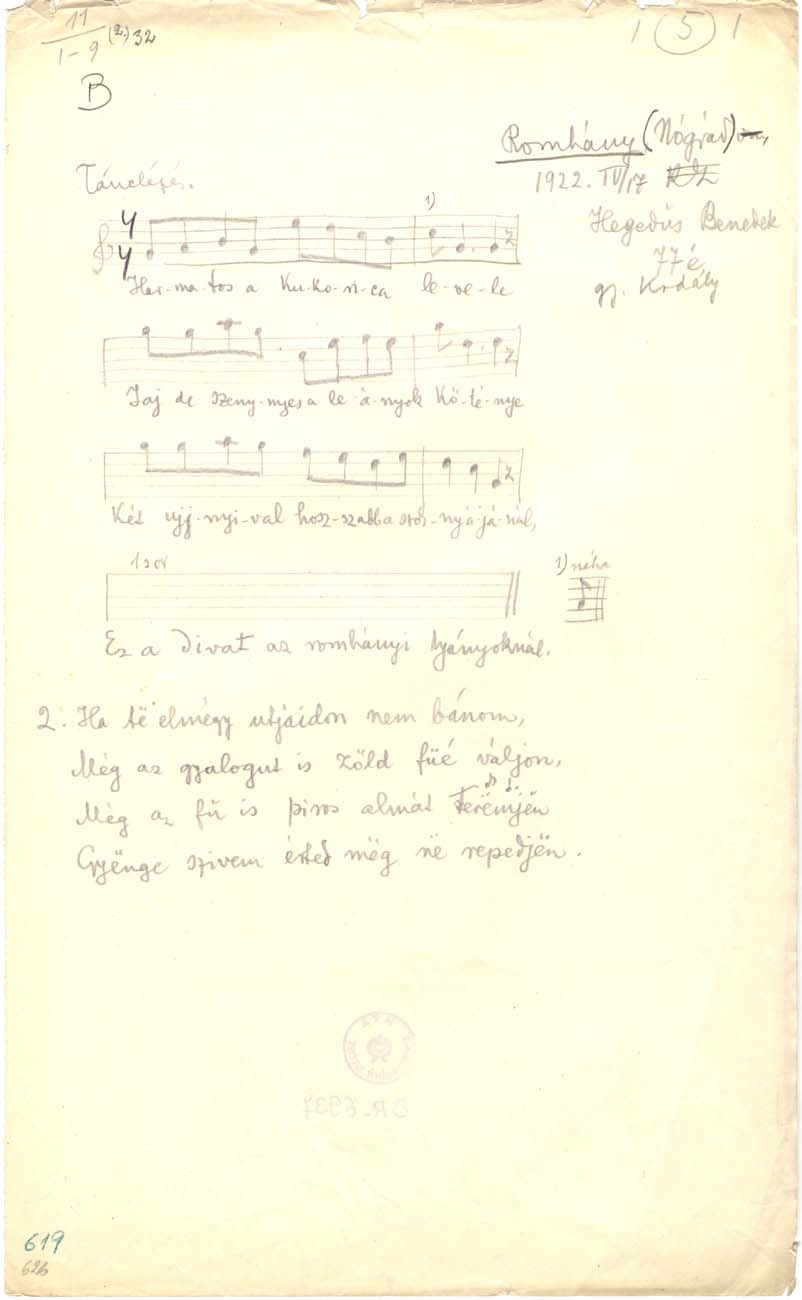 11
1-9 (2.) 32
1 (5) 1
B
Romhány (Nógrád)
1922. IV/17
Tánclépés.
Hegedűs Benedek
77 é
gj. Kodály
4
4
1)
Har-ma-tos a ku-ko-ri-ca le-ve-le
Jaj de szeny-nyes a le-á-nyok kö-té-nye
Két ujj-nyi-val hosz-szabb a szok-nyá-já-nál,
1 sor
1) néha
Ez a divat az romhányi lyányoknál.
2. Ha të elmégy utjaidon nem bánom,
Még az gyalogut is zöld füé váljon,
Még az fű is piros almát terëmjën
Gyënge szivem érted mëg në repedjën.
DR. 6937
619
626